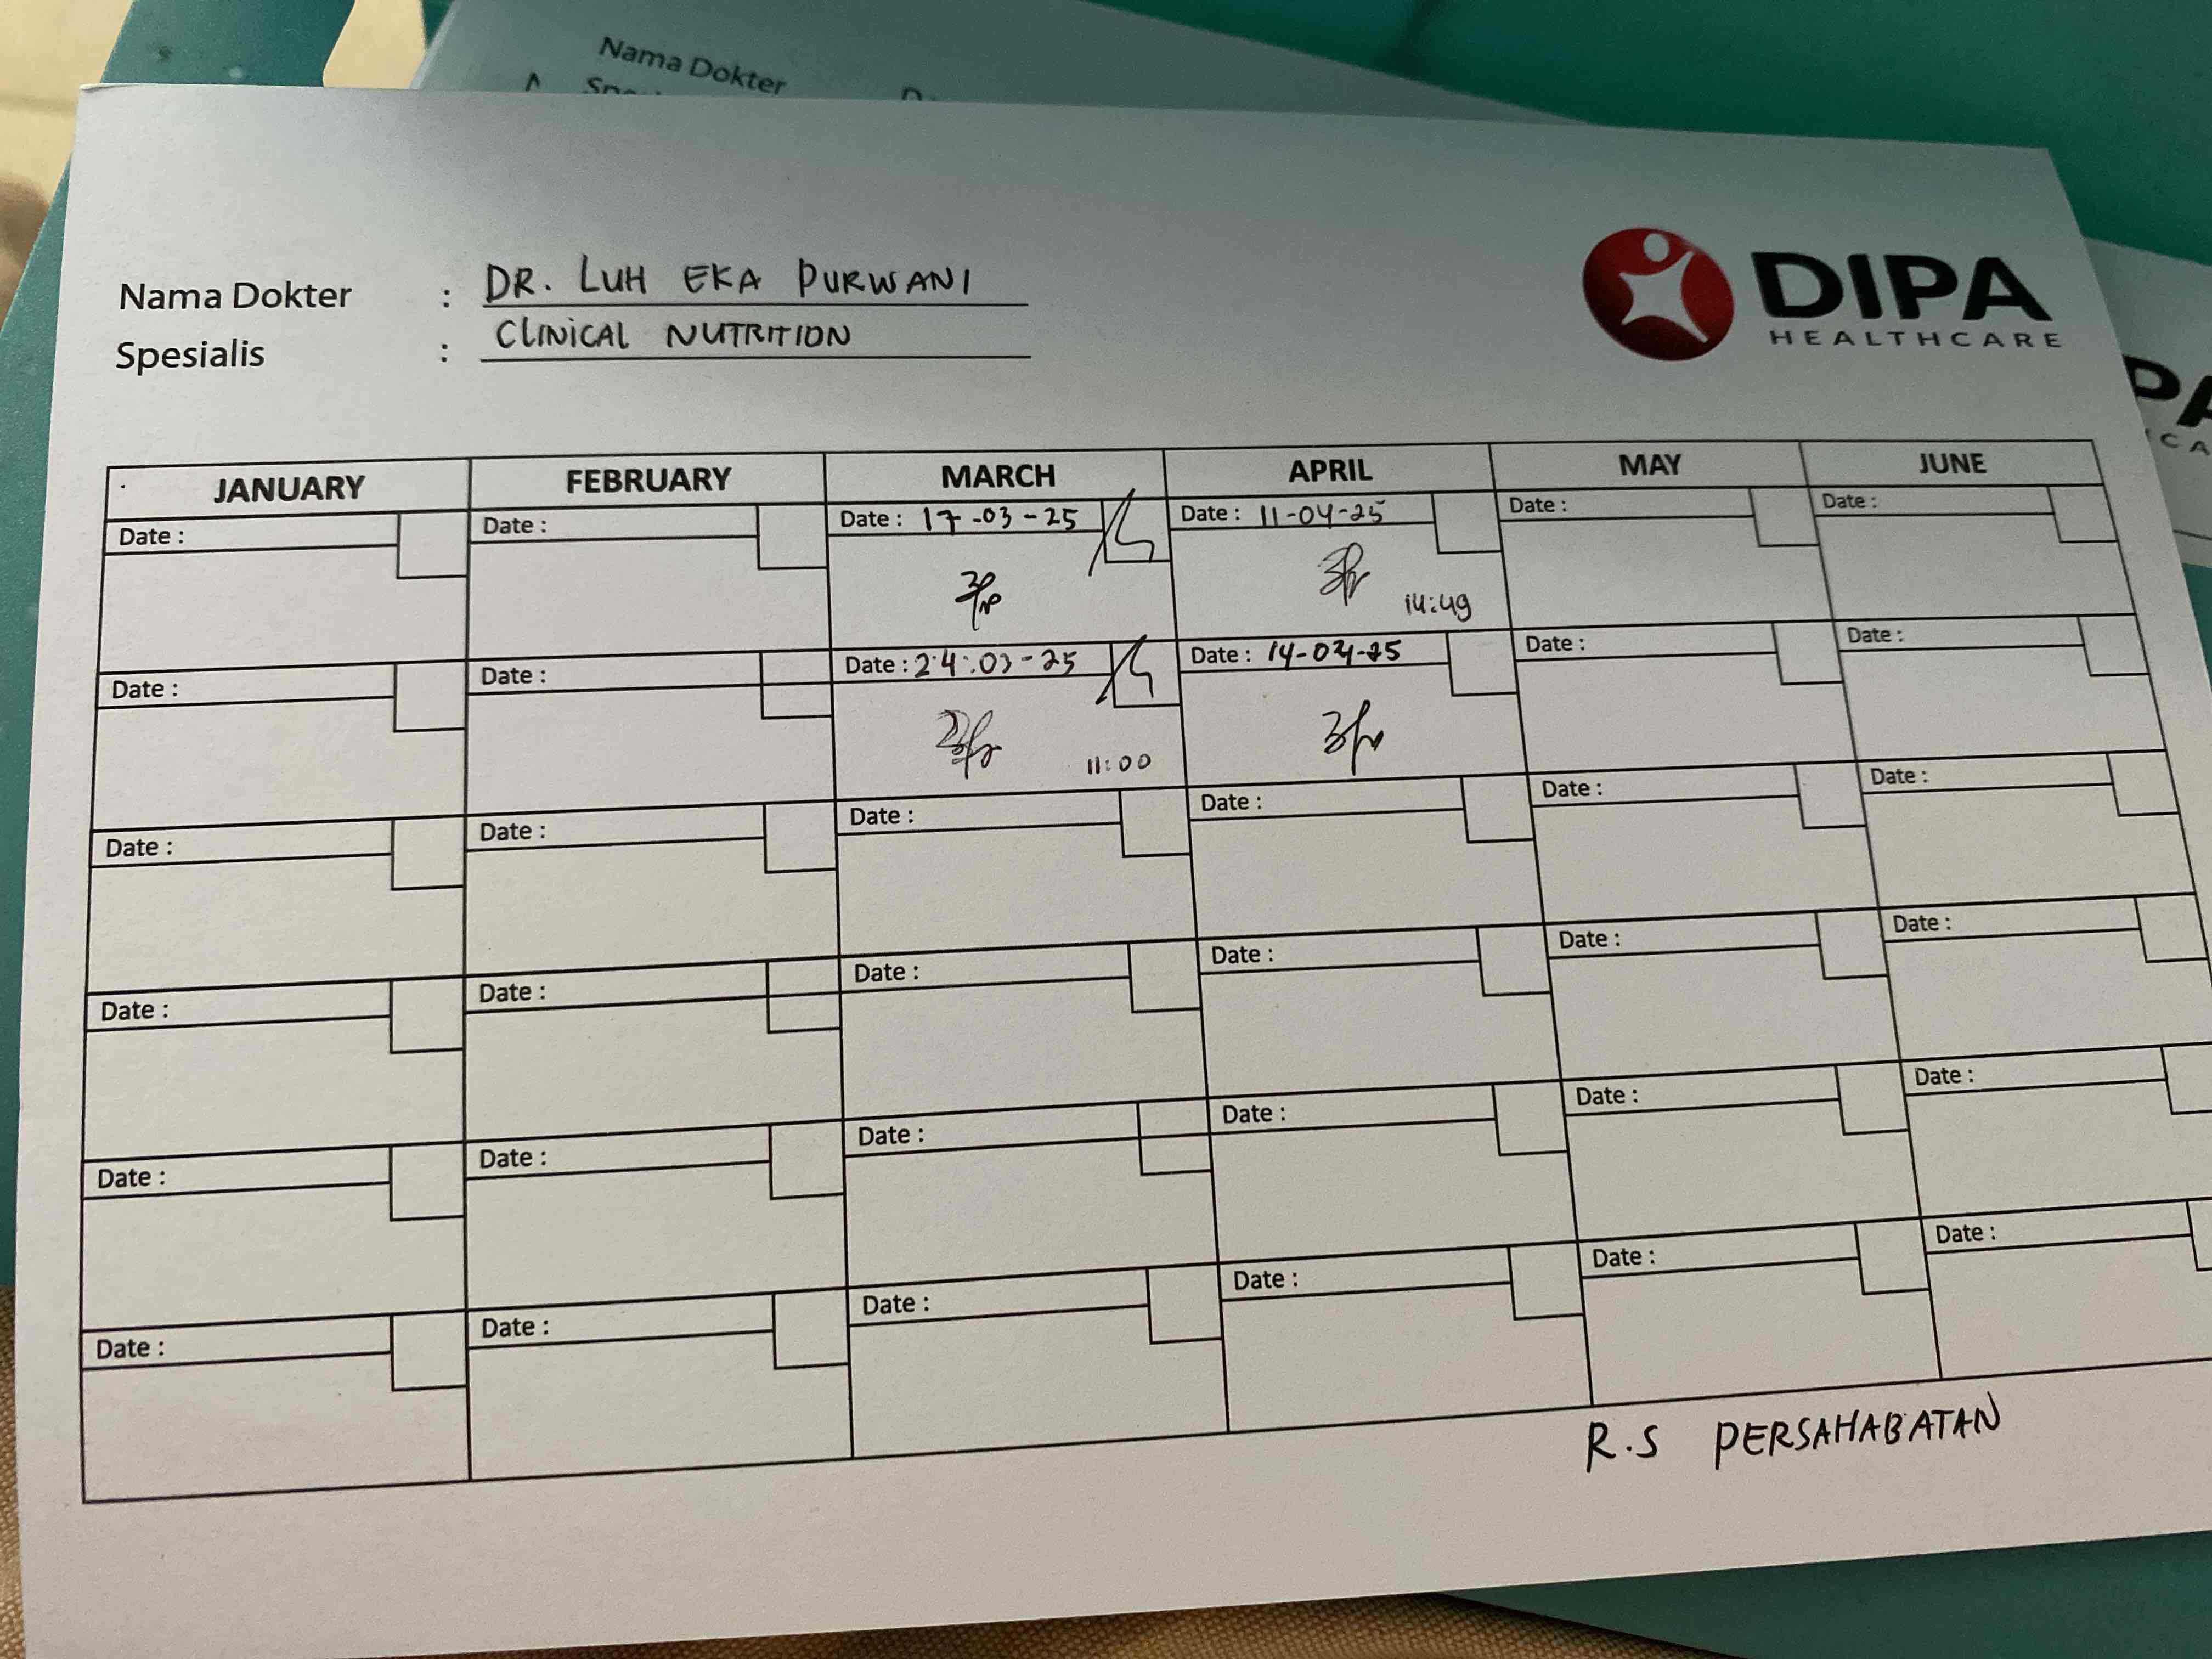 Nama Dokter
Nama Dokter : DR. LUH EKA PURWANI
Spesialis : CLINICAL NUTRITION
DIPA
HEALTHCARE
PA
JANUARY FEBRUARY MARCH APRIL MAY JUNE
Date : Date : Date : 17-03-25 Date : 11-04-25 Date : Date :
14:49
Date : Date : Date : 24:03-25 Date : 14-04-25 Date : Date :
11:00
Date : Date : Date : Date : Date : Date :
Date : Date : Date : Date : Date : Date :
Date : Date : Date : Date : Date : Date :
Date : Date : Date : Date : Date : Date :
R.S PERSAHABATAN